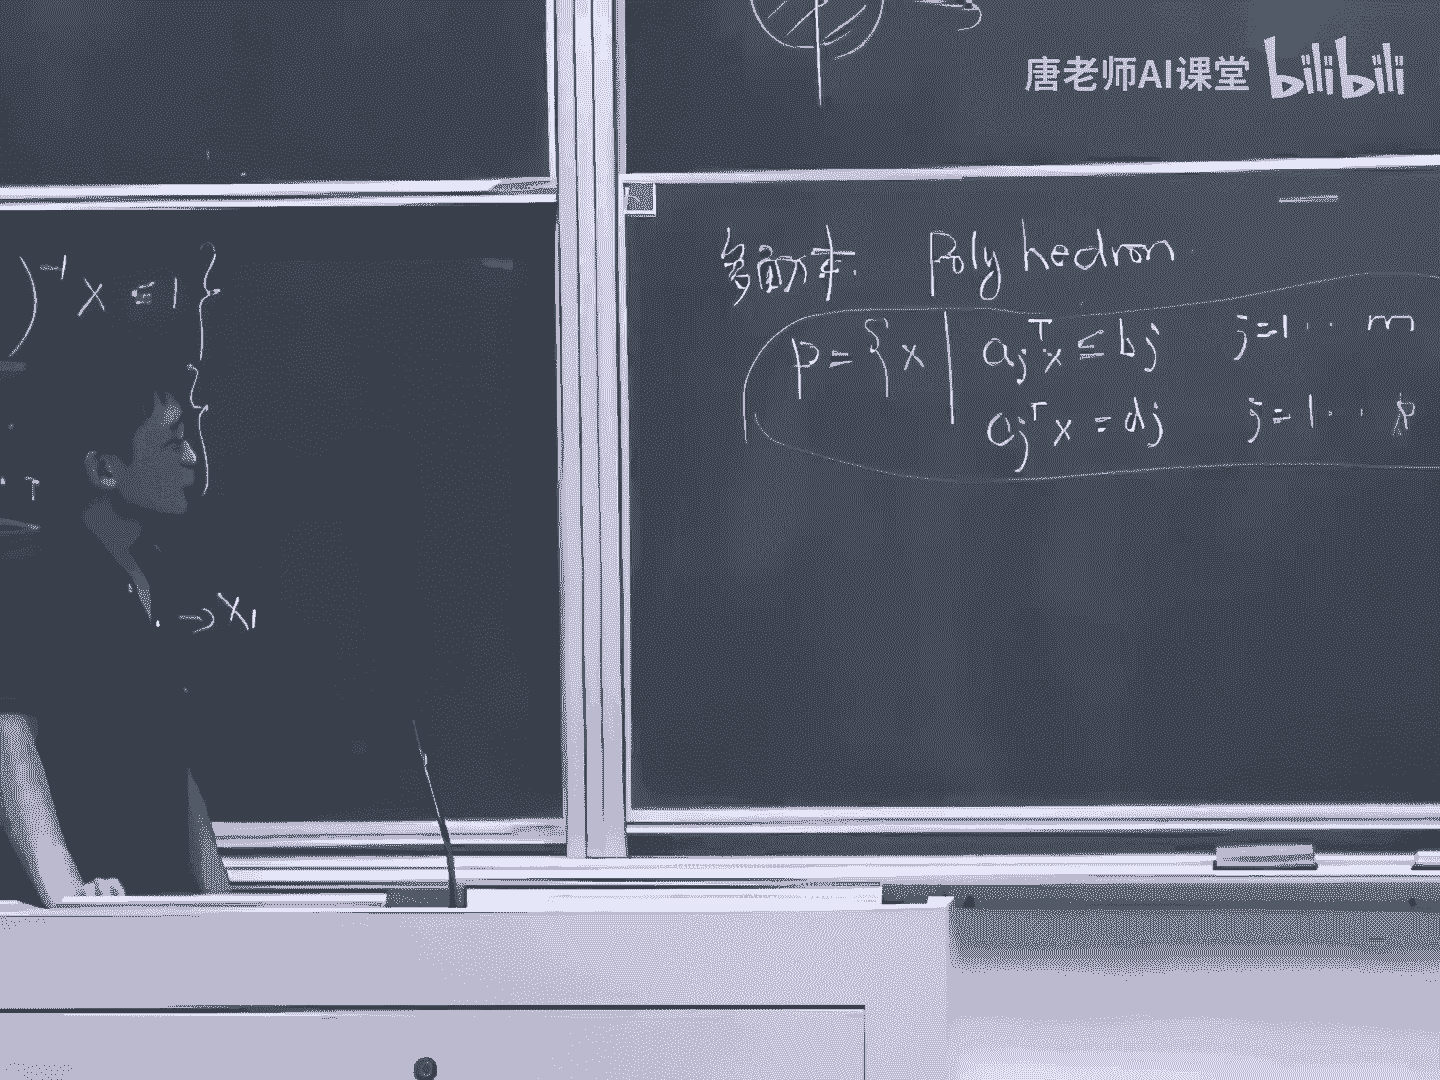 唐老师AI课堂 bilibili
)⁻¹ x ≤ 1 }
}
T
→ x₁
多面体. Polyhedron
P = { x | aⱼᵀx ≤ bⱼ j=1 ·· m
cⱼᵀx = dⱼ j=1 ·· p